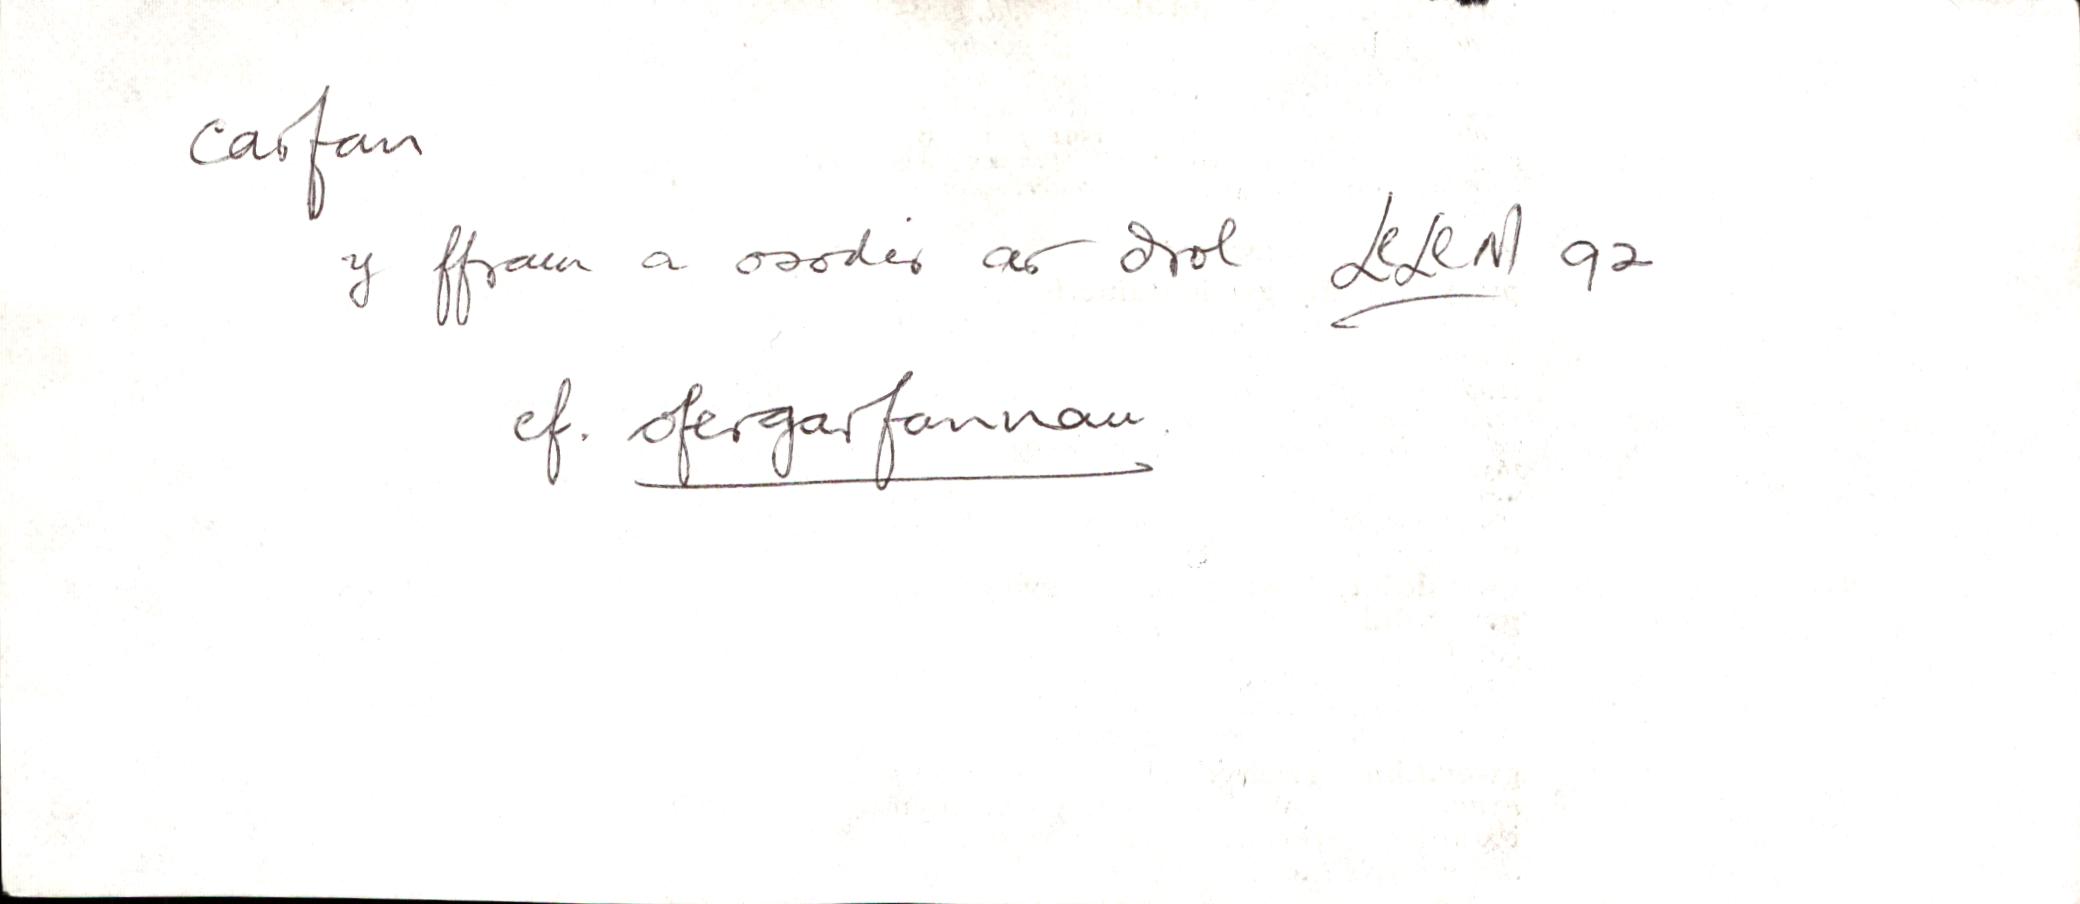 carfan
y ffram a osodir ar drol LlLlM 92
cf. ofergarfannau.